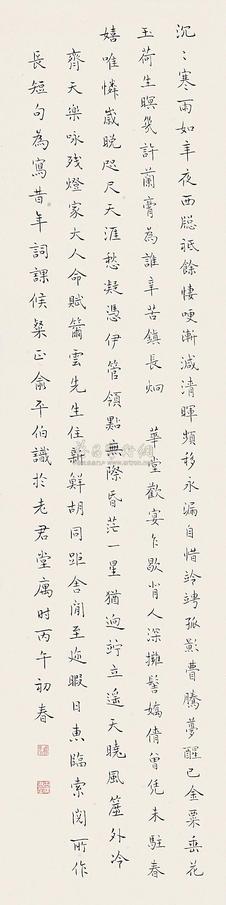 沉〻寒雨如年夜西窗祗餘悽哽漸減清暉頻移永漏自惜竛竮孤影曹騰夢醒已金粟垂花
玉荷生暝幾許蘭膏為誰辛苦鎮長炯　華堂歡宴乍歇背人深擁髻嬌倩曾凭未駐春
嬉唯憐歲晚咫尺天涯愁凝憑伊管領點無際昏茫一星猶迥竚立遙天曉風簾外冷
齊天樂咏殘燈家大人命賦篇雲先生住新鮮胡同距舍閒至邇暇日惠臨索閱所作
長短句為寫昔年詞課候棨正俞平伯識於老君堂寓时丙午初春